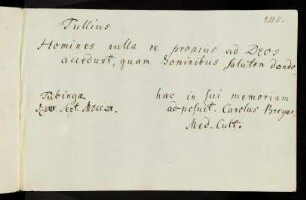 Tullius.
Homines nulla re propius ad Deos
accedunt, quam hominibus salutem dando
Tubingæ
hac in sui memoriam
Sept.
ad-posuit Carolus
Med. Cult.